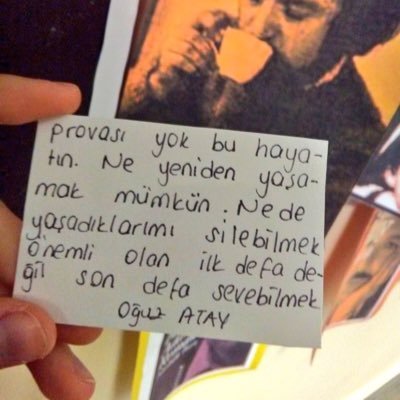 provası yok bu haya-
tın. Ne yeniden yaşa-
mak mümkün: Ne de
yaşadıklarımı silebilmek
önemli olan ilk defa de-
ğil son defa sevebilmek
Oğuz ATAY